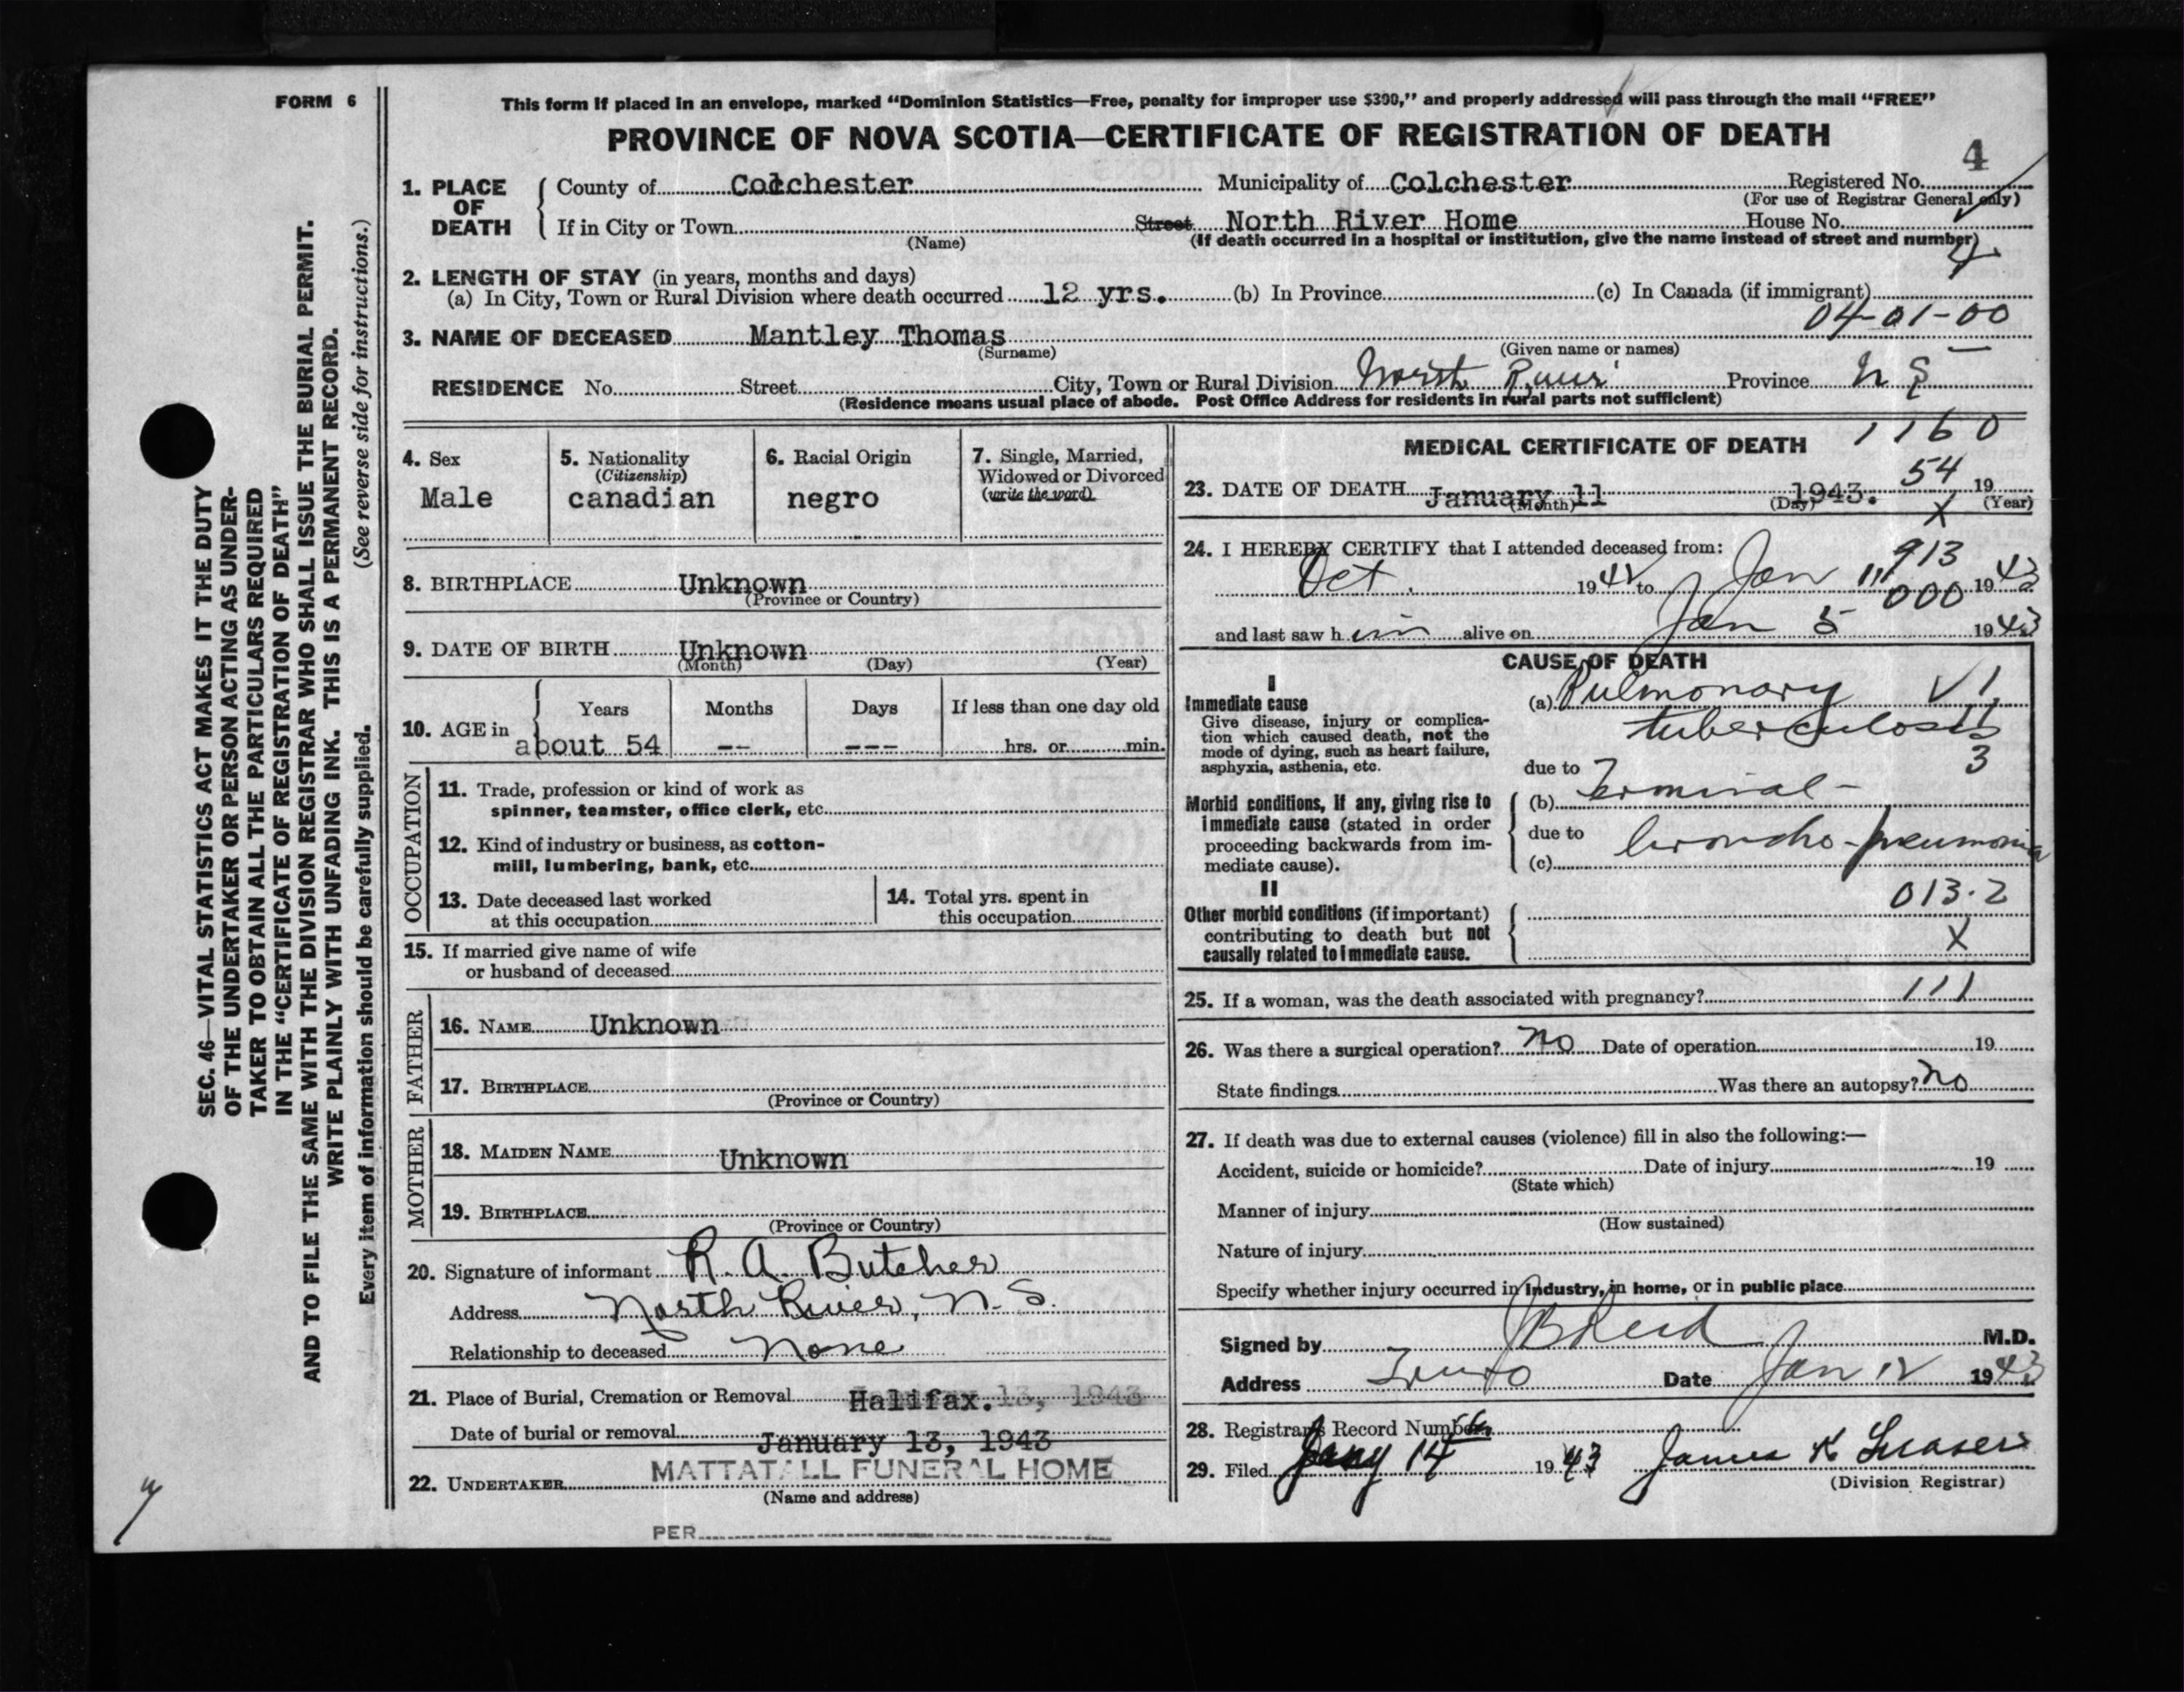 FORM 6
This form if placed in an envelope, marked "Dominion Statistics—Free, penalty for improper use $300," and properly addressed will pass through the mail "FREE"
PROVINCE OF NOVA SCOTIA—CERTIFICATE OF REGISTRATION OF DEATH
4
1. PLACE OF DEATH County of Colchester Municipality of Colchester Registered No.
(For use of Registrar General only)
If in City or Town Street North River Home House No.
(Name) (If death occurred in a hospital or institution, give the name instead of street and number)
2. LENGTH OF STAY (in years, months and days)
(a) In City, Town or Rural Division where death occurred 12 yrs. (b) In Province (c) In Canada (if immigrant)
04-01-00
3. NAME OF DECEASED Mantley Thomas
(Surname) (Given name or names)
RESIDENCE No. Street City, Town or Rural Division North River Province N S
(Residence means usual place of abode. Post Office Address for residents in rural parts not sufficient)
4. Sex
Male
5. Nationality
(Citizenship)
canadian
6. Racial Origin
negro
7. Single, Married,
Widowed or Divorced
(write the word)
8. BIRTHPLACE Unknown
(Province or Country)
9. DATE OF BIRTH Unknown
(Month) (Day) (Year)
10. AGE in Years Months Days If less than one day old
about 54 -- --- hrs. or min.
OCCUPATION
11. Trade, profession or kind of work as
spinner, teamster, office clerk, etc.
12. Kind of industry or business, as cotton-
mill, lumbering, bank, etc.
13. Date deceased last worked
at this occupation
14. Total yrs. spent in
this occupation
15. If married give name of wife
or husband of deceased
FATHER
16. NAME Unknown
17. BIRTHPLACE
(Province or Country)
MOTHER
18. MAIDEN NAME Unknown
19. BIRTHPLACE
(Province or Country)
20. Signature of informant R. A. Butcher
Address North River, N. S.
Relationship to deceased None
21. Place of Burial, Cremation or Removal Halifax. 13, 1943
Date of burial or removal January 13, 1943
22. UNDERTAKER MATTATALL FUNERAL HOME
(Name and address)
PER
1160
MEDICAL CERTIFICATE OF DEATH
54
23. DATE OF DEATH January 11 1943. 19
(Month) (Day) (Year)
X
24. I HEREBY CERTIFY that I attended deceased from:
913
Oct. 1942 to Jan 11 1943
000
and last saw him alive on Jan 5 1943
CAUSE OF DEATH
I
Immediate cause
Give disease, injury or complica-
tion which caused death, not the
mode of dying, such as heart failure,
asphyxia, asthenia, etc.
(a) Pulmonary
tuberculosis
3
due to
Morbid conditions, if any, giving rise to
immediate cause (stated in order
proceeding backwards from im-
mediate cause).
(b) Terminal -
due to
(c) broncho-pneumonia
II
Other morbid conditions (if important)
contributing to death but not
causally related to immediate cause.
013.2
X
25. If a woman, was the death associated with pregnancy? 111
26. Was there a surgical operation? No Date of operation 19
State findings Was there an autopsy? No
27. If death was due to external causes (violence) fill in also the following:—
Accident, suicide or homicide? Date of injury 19
(State which)
Manner of injury
(How sustained)
Nature of injury
Specify whether injury occurred in industry, in home, or in public place
Signed by M.D.
Address Truro Date Jan 12 1943
28. Registrar's Record Number
29. Filed Jany 14 1943 James K
(Division Registrar)
SEC. 46—VITAL STATISTICS ACT MAKES IT THE DUTY
OF THE UNDERTAKER OR PERSON ACTING AS UNDER-
TAKER TO OBTAIN ALL THE PARTICULARS REQUIRED
IN THE "CERTIFICATE OF REGISTRATION OF DEATH"
AND TO FILE THE SAME WITH THE DIVISION REGISTRAR WHO SHALL ISSUE THE BURIAL PERMIT.
WRITE PLAINLY WITH UNFADING INK. THIS IS A PERMANENT RECORD.
Every item of information should be carefully supplied. (See reverse side for instructions.)